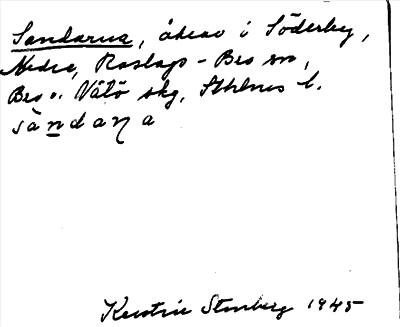 Sandarna, åkrar i Söderby,
Nedre, Roslags-Bro sn,
Bro o. Vätö skg, Sthlms l.
sàndaɳa
Kerstin Stenberg 1945